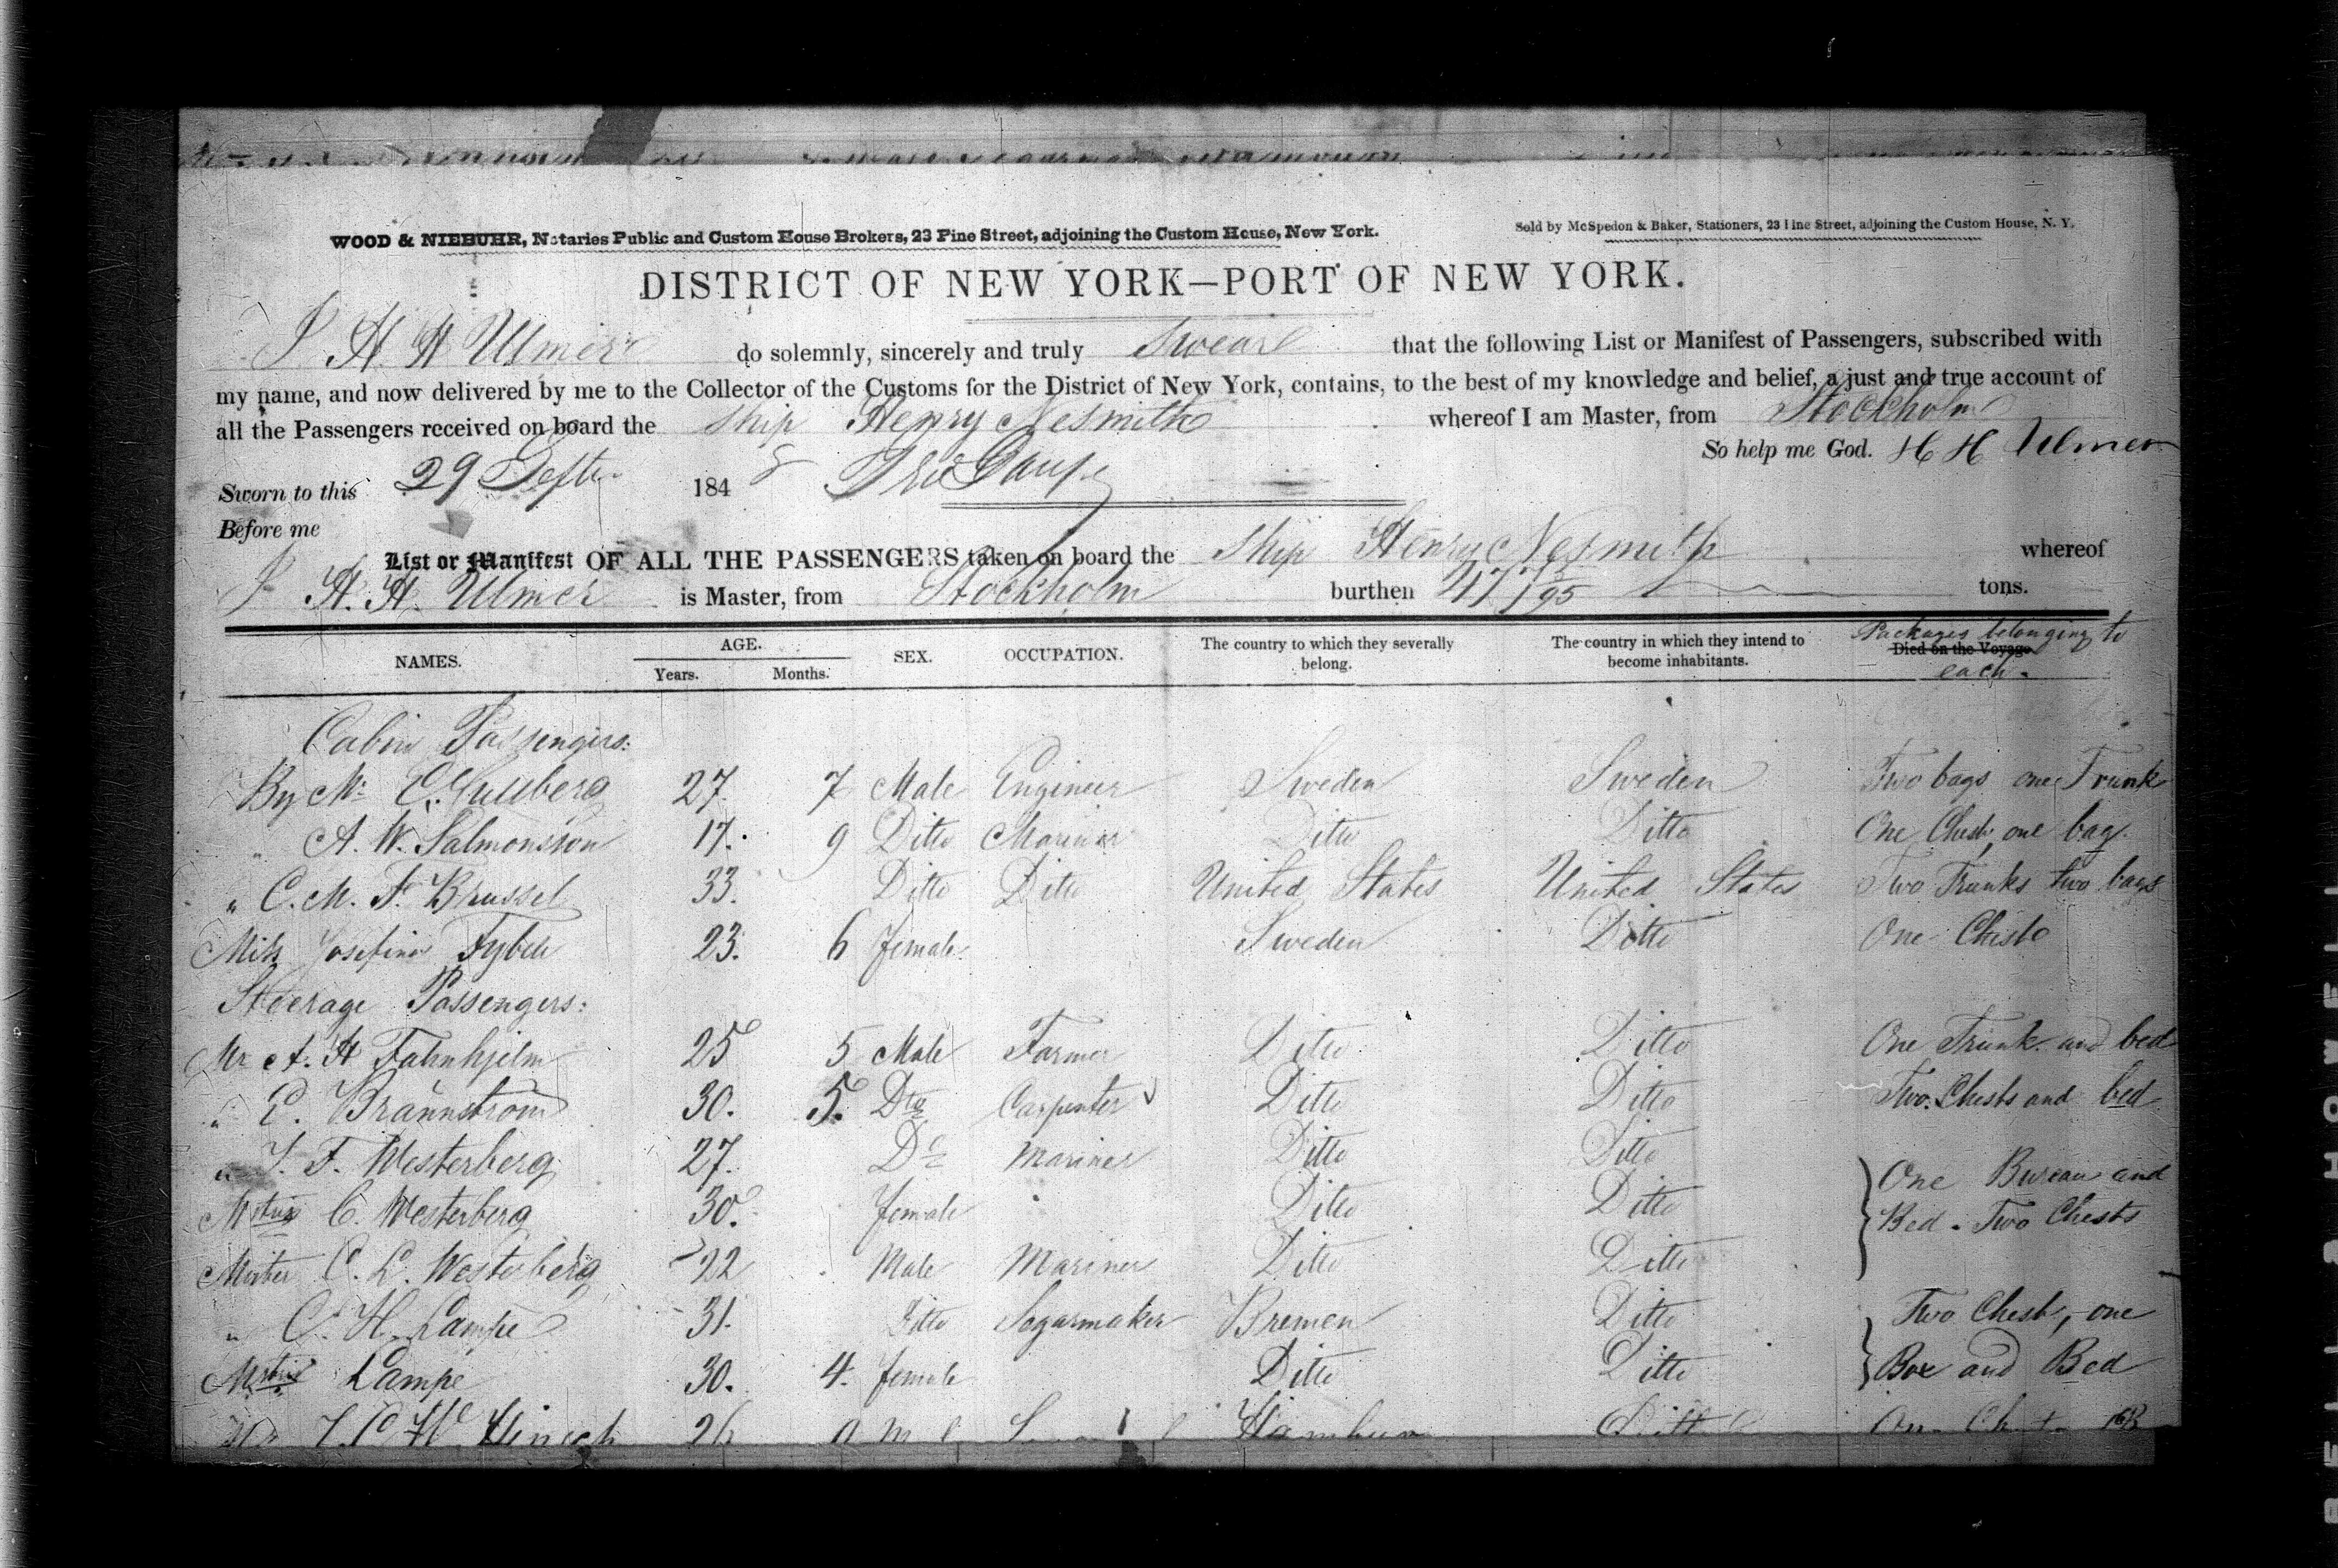 WOOD & NIEBUHR, Notaries Public and Custom House Brokers, 23 Pine Street, adjoining the Custom House, New York.
Sold by McSpedon & Baker, Stationers, 23 Pine Street, adjoining the Custom House, N. Y.
DISTRICT OF NEW YORK—PORT OF NEW YORK.
I H. H Ulmer do solemnly, sincerely and truly Swear that the following List or Manifest of Passengers, subscribed with
my name, and now delivered by me to the Collector of the Customs for the District of New York, contains, to the best of my knowledge and belief, a just and true account of
all the Passengers received on board the Ship Henry Nesmith whereof I am Master, from Stockholm
So help me God. H H Ulmer
Sworn to this 29 Septr 1848
Before me
List or Manifest OF ALL THE PASSENGERS taken on board the Ship Henry Nesmith whereof
H. H. Ulmer is Master, from Stockholm burthen tons.
NAMES. AGE. Years. Months. SEX. OCCUPATION. The country to which they severally belong. The country in which they intend to become inhabitants. Died on the Voyage Packages belonging to each.
Cabin Passengers:
By Mr 27. 7 Male Engineer Sweden Sweden Two bags, one Trunk
" A. W. Salmonsson 17. 9 Ditto Mariner Ditto Ditto One Chest, one bag.
" C. M. F. Brussel 33. Ditto Ditto United States United States Two Trunks two bags
Miss Josefina 23. 6 female Sweden Ditto One Chest
Steerage Passengers:
Mr A. H Fahnhjelm 25 5 Male Farmer Ditto Ditto One Trunk and bed
" E. Brännström 30. 5. Dto Carpenter Ditto Ditto Two Chests and bed
" J. F. Westerberg 27. Do Mariner Ditto Ditto
C. Westerberg 30. female Ditto Ditto One Bureau and
Bed. Two Chests
Mister C. L. Westerberg 22 Male Mariner Ditto Ditto
" C. H. Lampe 31. Ditto Segarmaker Bremen Ditto Two Chests, one
Lampe 30. 4. female Ditto Ditto Box and Bed
26 Hamburg Ditto
BELL & HOWELL